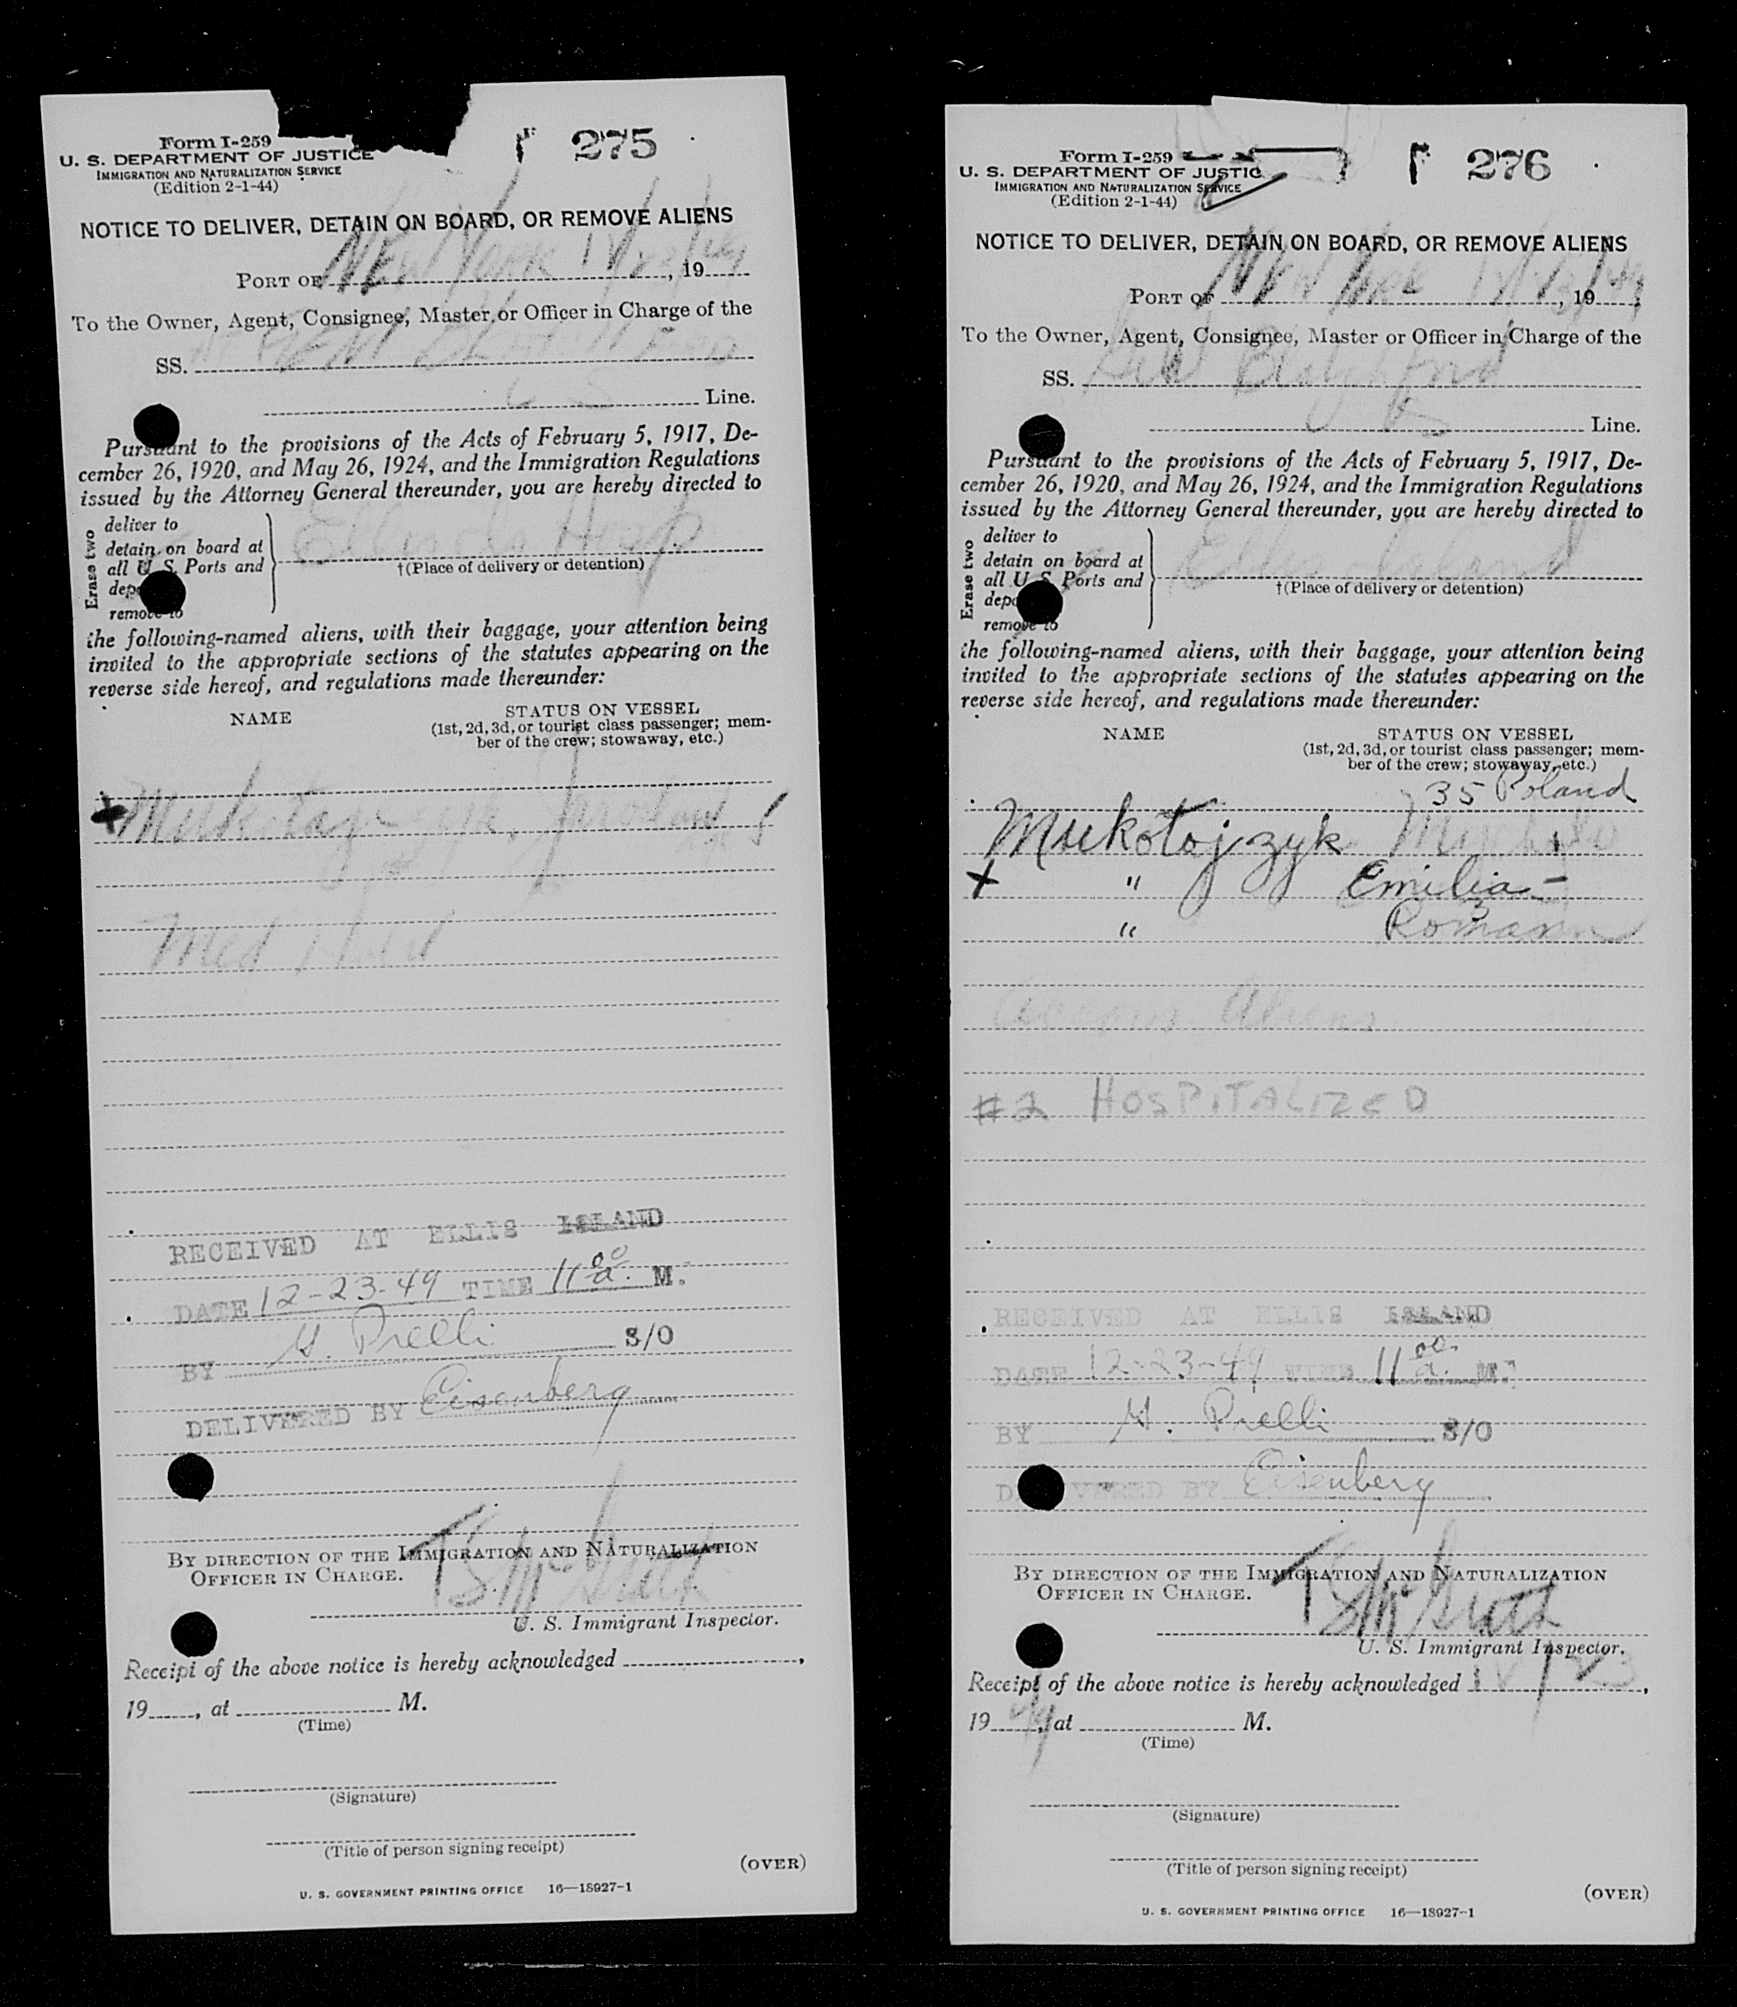 Form I-259
U. S. DEPARTMENT OF JUSTICE
IMMIGRATION AND NATURALIZATION SERVICE
(Edition 2-1-44)
275
NOTICE TO DELIVER, DETAIN ON BOARD, OR REMOVE ALIENS
PORT OF New York 12/23/49, 19
To the Owner, Agent, Consignee, Master or Officer in Charge of the
SS.
US Line.
Pursuant to the provisions of the Acts of February 5, 1917, De-
cember 26, 1920, and May 26, 1924, and the Immigration Regulations
issued by the Attorney General thereunder, you are hereby directed to
Erase two
deliver to
detain on board at
all U. S. Ports and
remove to
Ellis Is Hosp
†(Place of delivery or detention)
the following-named aliens, with their baggage, your attention being
invited to the appropriate sections of the statutes appearing on the
reverse side hereof, and regulations made thereunder:
NAME
STATUS ON VESSEL
(1st, 2d, 3d, or tourist class passenger; mem-
ber of the crew; stowaway, etc.)
Med Hold
RECEIVED AT ELLIS ISLAND
DATE 12-23-49 TIME 11 00 a. M.
BY Prelli S/O
DELIVERED BY Eisenberg
BY DIRECTION OF THE IMMIGRATION AND NATURALIZATION
OFFICER IN CHARGE.
U. S. Immigrant Inspector.
Receipt of the above notice is hereby acknowledged ,
19 , at M.
(Time)
(Signature)
(Title of person signing receipt)
(OVER)
U. S. GOVERNMENT PRINTING OFFICE 16—18927-1
Form I-259
U. S. DEPARTMENT OF JUSTIC
IMMIGRATION AND NATURALIZATION SERVICE
(Edition 2-1-44)
276
NOTICE TO DELIVER, DETAIN ON BOARD, OR REMOVE ALIENS
PORT OF New York 12/23/49, 19
To the Owner, Agent, Consignee, Master or Officer in Charge of the
SS. Blatchford
US Line.
Pursuant to the provisions of the Acts of February 5, 1917, De-
cember 26, 1920, and May 26, 1924, and the Immigration Regulations
issued by the Attorney General thereunder, you are hereby directed to
Erase two
deliver to
detain on board at
all U. S. Ports and
remove to
Ellis Island
†(Place of delivery or detention)
the following-named aliens, with their baggage, your attention being
invited to the appropriate sections of the statutes appearing on the
reverse side hereof, and regulations made thereunder:
NAME
STATUS ON VESSEL
(1st, 2d, 3d, or tourist class passenger; mem-
ber of the crew; stowaway, etc.)
35 Poland
Muekotojzyk
x " Emilia -
" Roman
Accomp. Aliens
#2 HOSPITALIZED
RECEIVED AT ELLIS ISLAND
DATE 12-23-49 TIME 11 00 a. M.
BY Prelli S/O
DELIVERED BY Eisenberg
BY DIRECTION OF THE IMMIGRATION AND NATURALIZATION
OFFICER IN CHARGE.
U. S. Immigrant Inspector.
Receipt of the above notice is hereby acknowledged 12/23,
19 49, at M.
(Time)
(Signature)
(Title of person signing receipt)
(OVER)
U. S. GOVERNMENT PRINTING OFFICE 16—18927-1